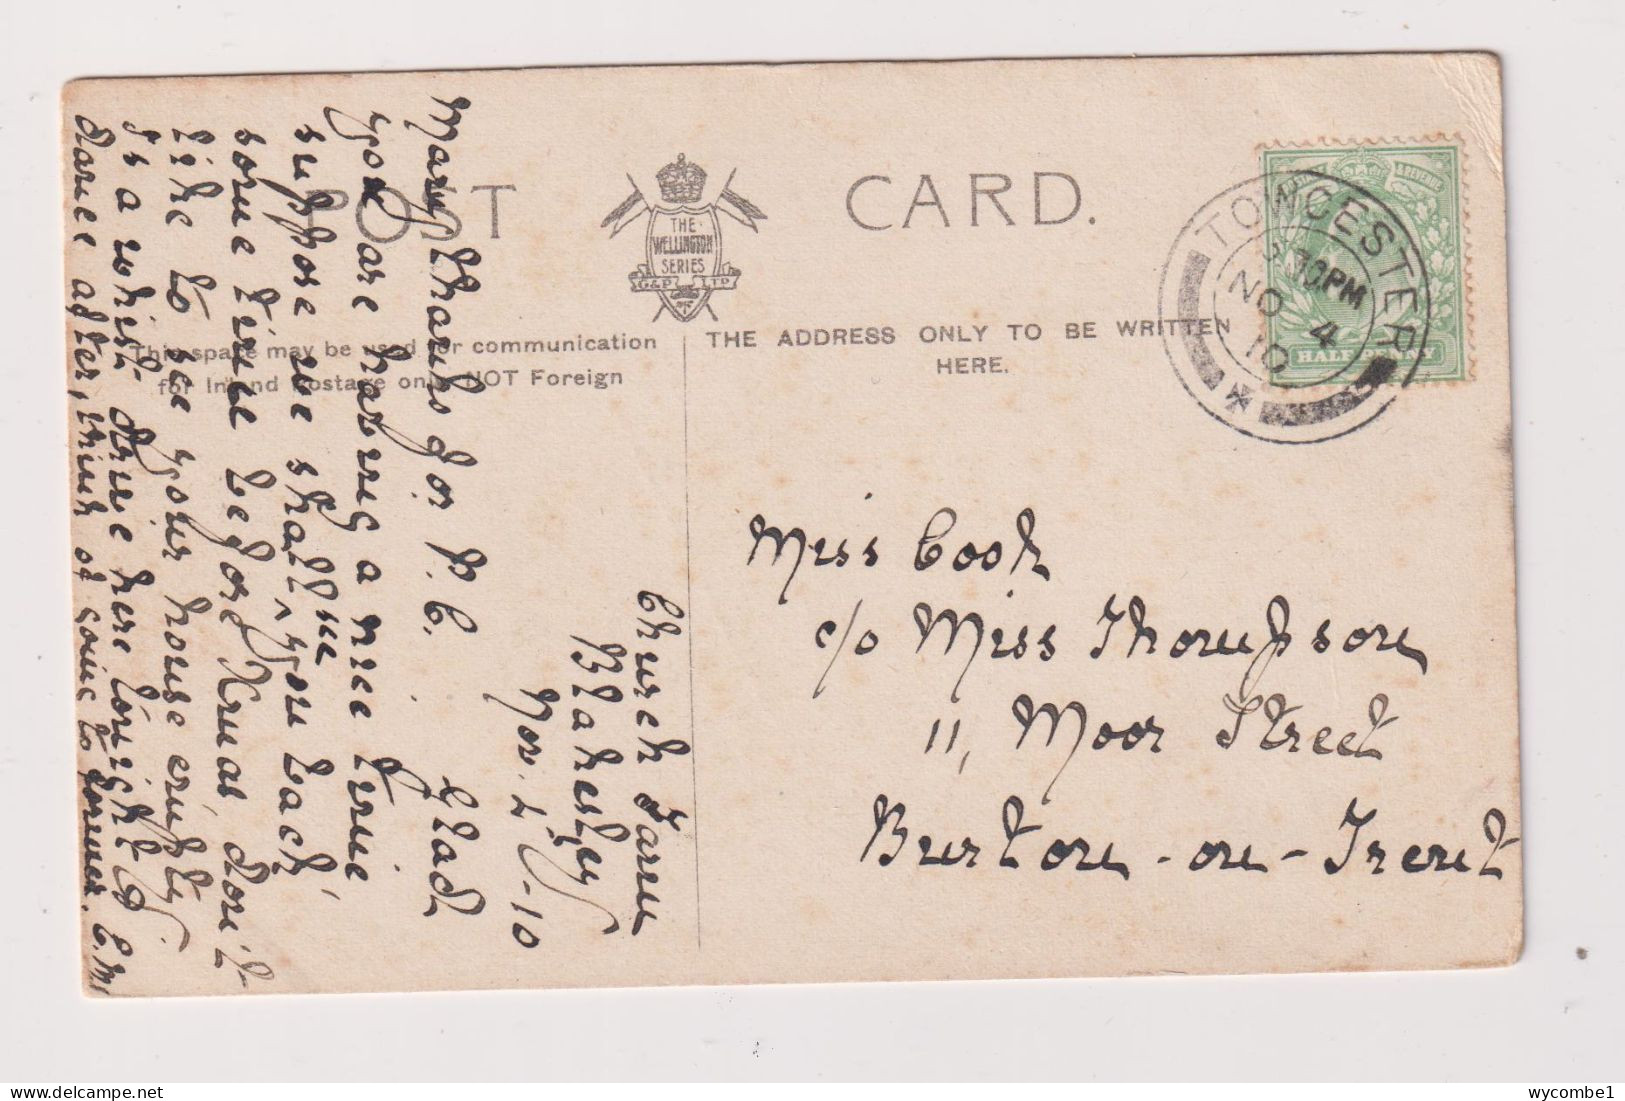 POST CARD.
THE
WELLINGTON
SERIES
G&P LTD
This space may be used for communication
for Inland Postage only NOT Foreign
THE ADDRESS ONLY TO BE WRITTEN
HERE.
TOWCESTER
30PM
NO 4
10
& REVENUE
HALF PENNY
Church Farm
Blakesley
Nov. 4-10
Many thanks for P.C. Glad
you are having a nice time
suppose we shall see you back
some time before Xmas, don't
like to see your house empty
Is a whist drive here tonight &
dance after, think of going to former. E.M.
Miss Cook
c/o Miss Thompson
11, Moor Street
Burton-on-Trent
wycombe1